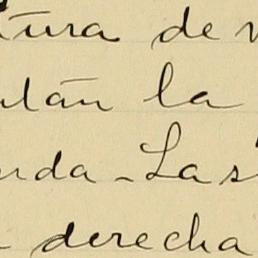 tura de
ulán la
rda - Las
derecha